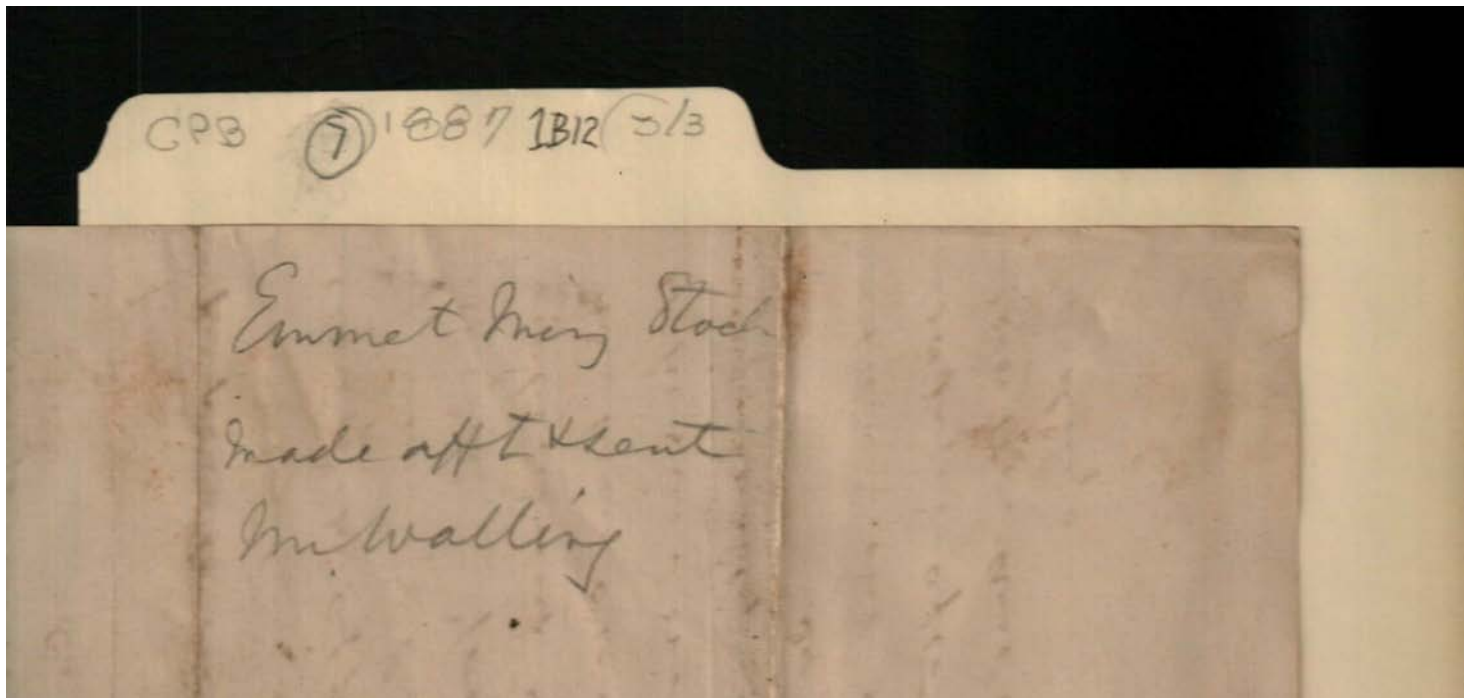 CPB 7 1887 1B12 5/3
Emmet Ming Stock
Made afft & sent
Mr Walling